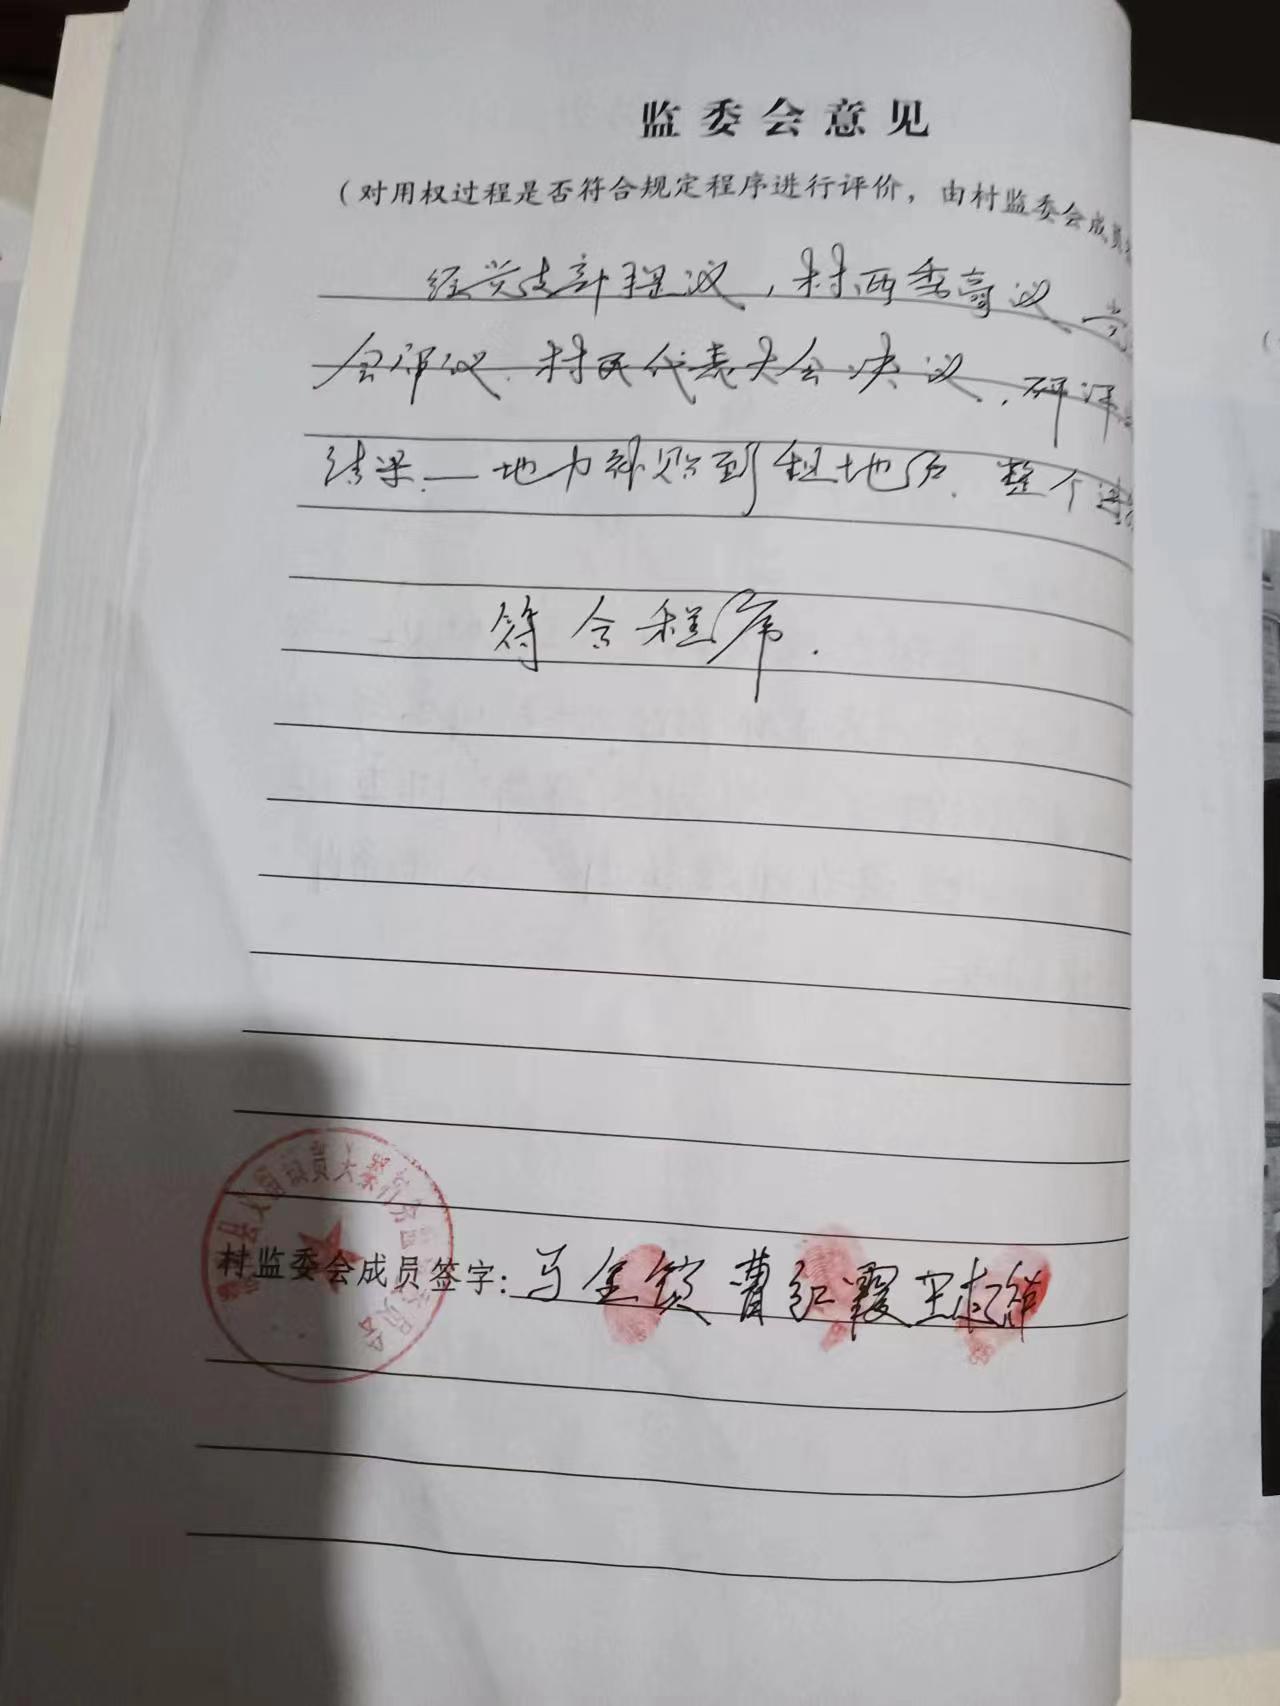 监委会意见
（对用权过程是否符合规定程序进行评价，由村监委会成员
经党支部提议，村两委商议 党
会审议、村民代表大会决议、研评
结果：一地力补贴到租地户。整个
符合程序.
村监委会成员签字：马全钦 曹红霞